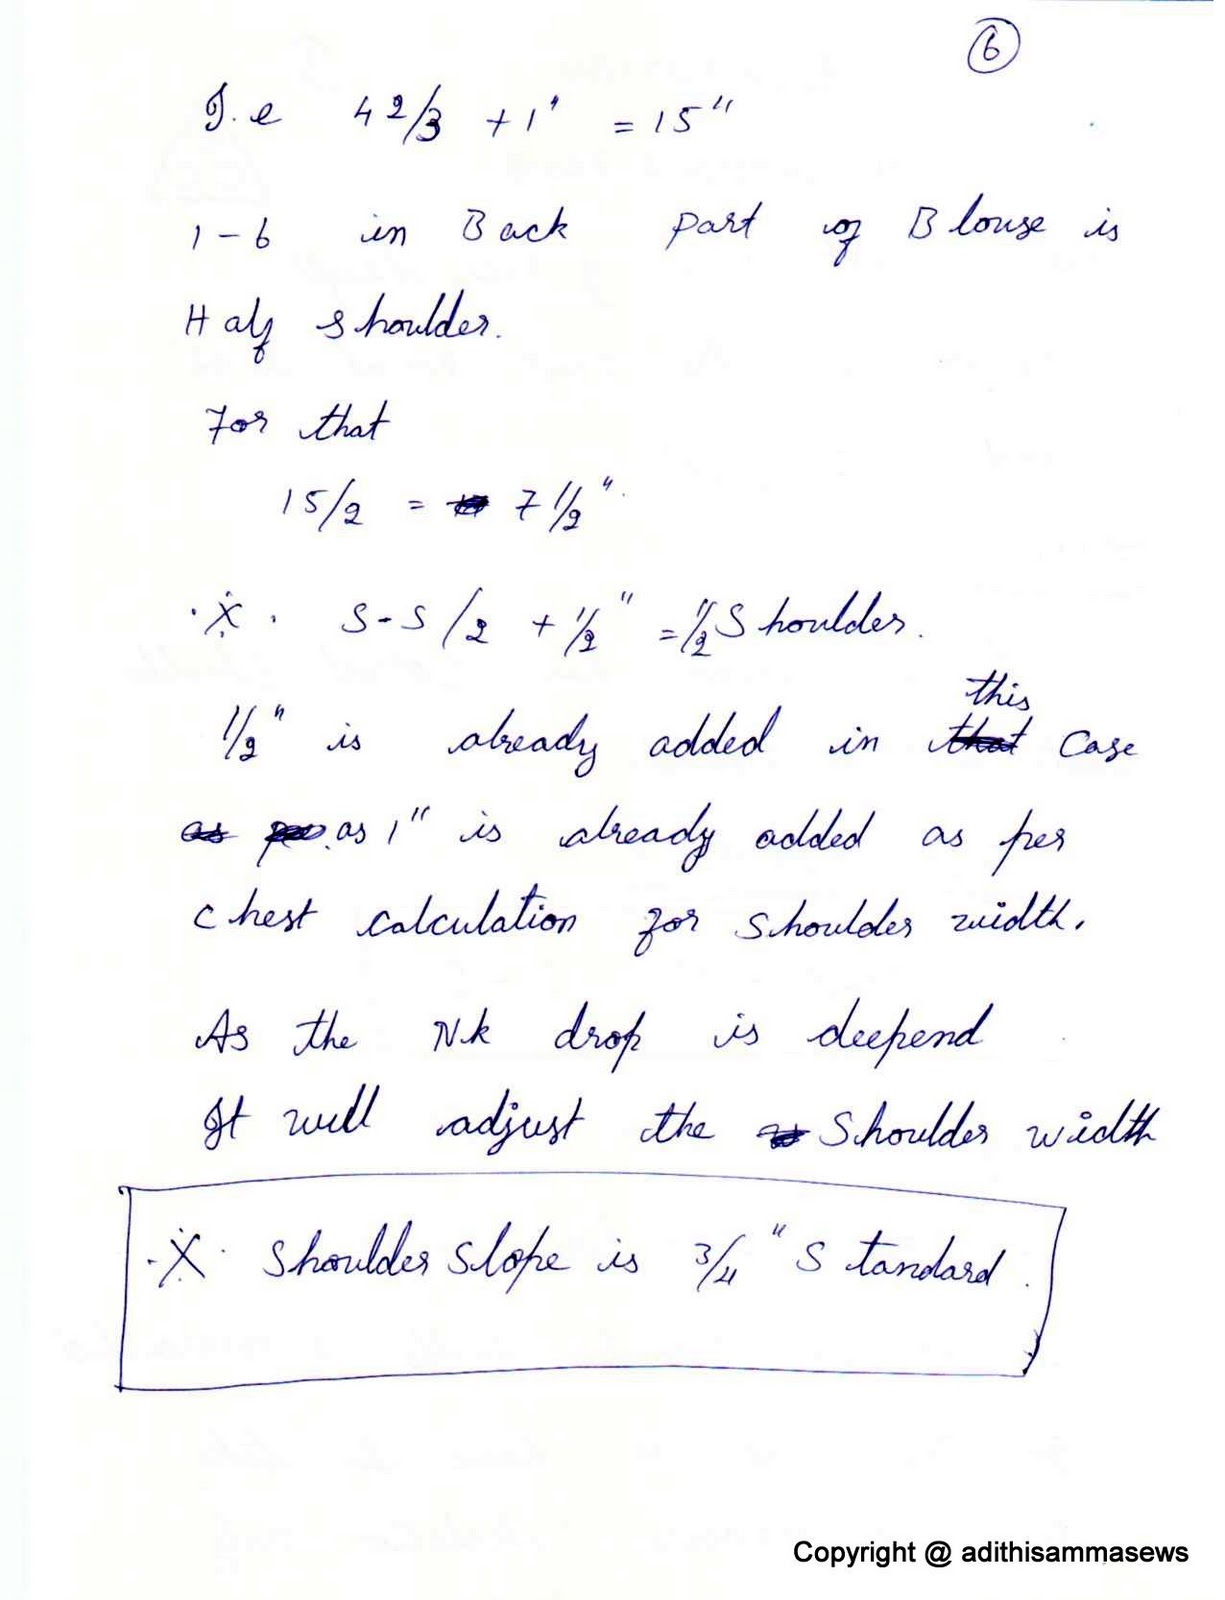 6
I.e 42/3 + 1" = 15"
1-6 in Back part of Blouse is
Half shoulder.
For that
15/2 = 7 1/2".
S-S/2 + 1/2" = 1/2 Shoulder.
this
1/2" is already added in that case
as as 1" is already added as per
chest calculation for shoulder width.
As the Nk drop is deepend
It will adjust the Shoulder width
X Shoulder slope is 3/4" Standard.
Copyright @ adithisammasews